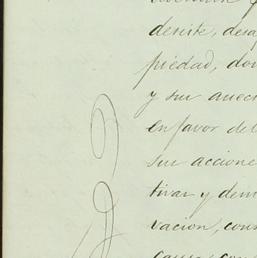 desiste, desa
piedad, do
y sus anec
en favor del
sus accione
tivar y dem
vacion, con